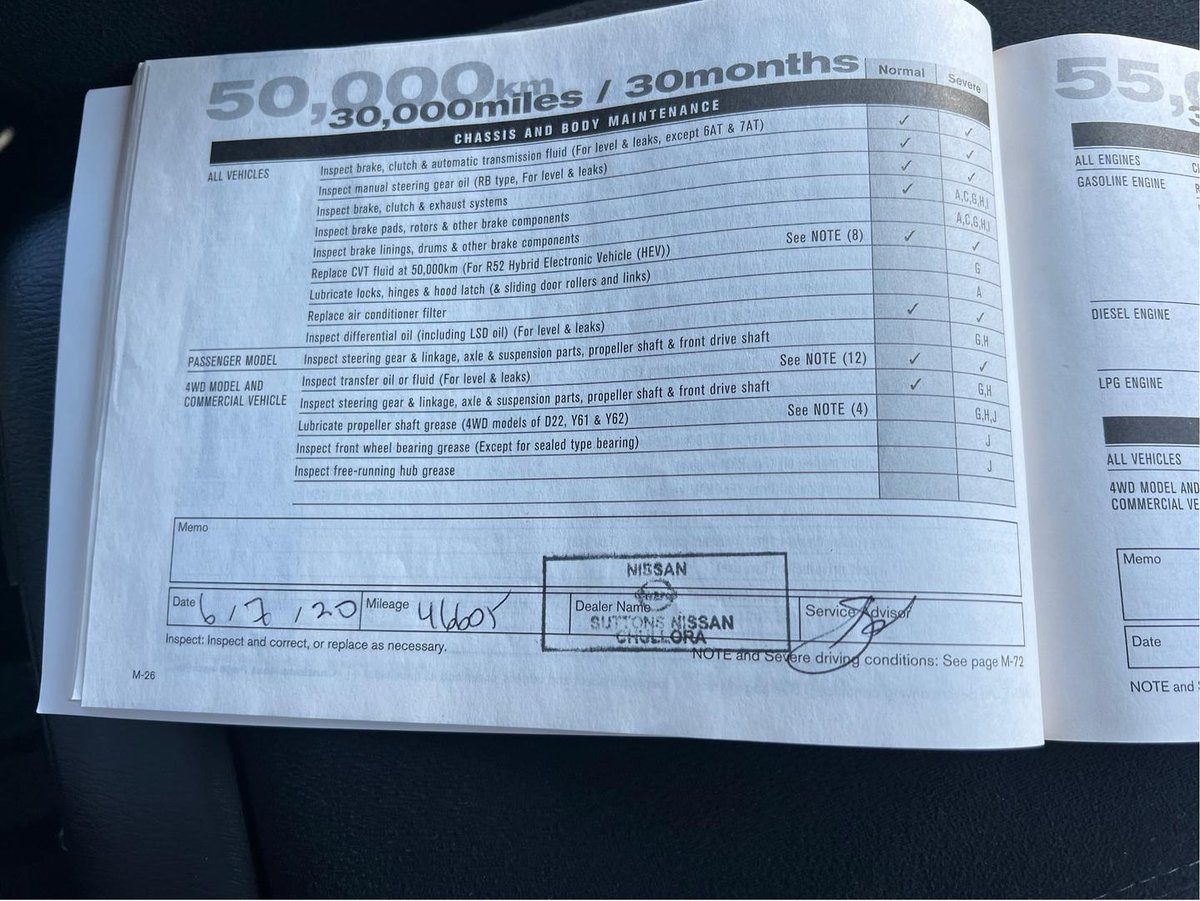 50,000km
30,000miles / 30months
Normal Severe
CHASSIS AND BODY MAINTENANCE
ALL VEHICLES Inspect brake, clutch & automatic transmission fluid (For level & leaks, except 6AT & 7AT) ✓ ✓
Inspect manual steering gear oil (RB type, For level & leaks) ✓ ✓
Inspect brake, clutch & exhaust systems ✓ ✓
Inspect brake pads, rotors & other brake components ✓ A,C,G,H,I
Inspect brake linings, drums & other brake components A,C,G,H,I
Replace CVT fluid at 50,000km (For R52 Hybrid Electronic Vehicle (HEV)) See NOTE (8) ✓ ✓
Lubricate locks, hinges & hood latch (& sliding door rollers and links) G
Replace air conditioner filter A
Inspect differential oil (including LSD oil) (For level & leaks) ✓ ✓
PASSENGER MODEL Inspect steering gear & linkage, axle & suspension parts, propeller shaft & front drive shaft G,H
4WD MODEL AND
COMMERCIAL VEHICLE
Inspect transfer oil or fluid (For level & leaks) See NOTE (12) ✓ ✓
Inspect steering gear & linkage, axle & suspension parts, propeller shaft & front drive shaft ✓ G,H
Lubricate propeller shaft grease (4WD models of D22, Y61 & Y62) See NOTE (4) G,H,J
Inspect front wheel bearing grease (Except for sealed type bearing) J
Inspect free-running hub grease J
Memo
Date 6/7/20 Mileage 46605 Dealer Name Service Advisor
NISSAN
SUTTONS NISSAN
CHULLORA
Inspect: Inspect and correct, or replace as necessary.
NOTE and Severe driving conditions: See page M-72
M-26
55,
ALL ENGINES
GASOLINE ENGINE
DIESEL ENGINE
LPG ENGINE
ALL VEHICLES
4WD MODEL AND
COMMERCIAL VE
Memo
Date
NOTE and